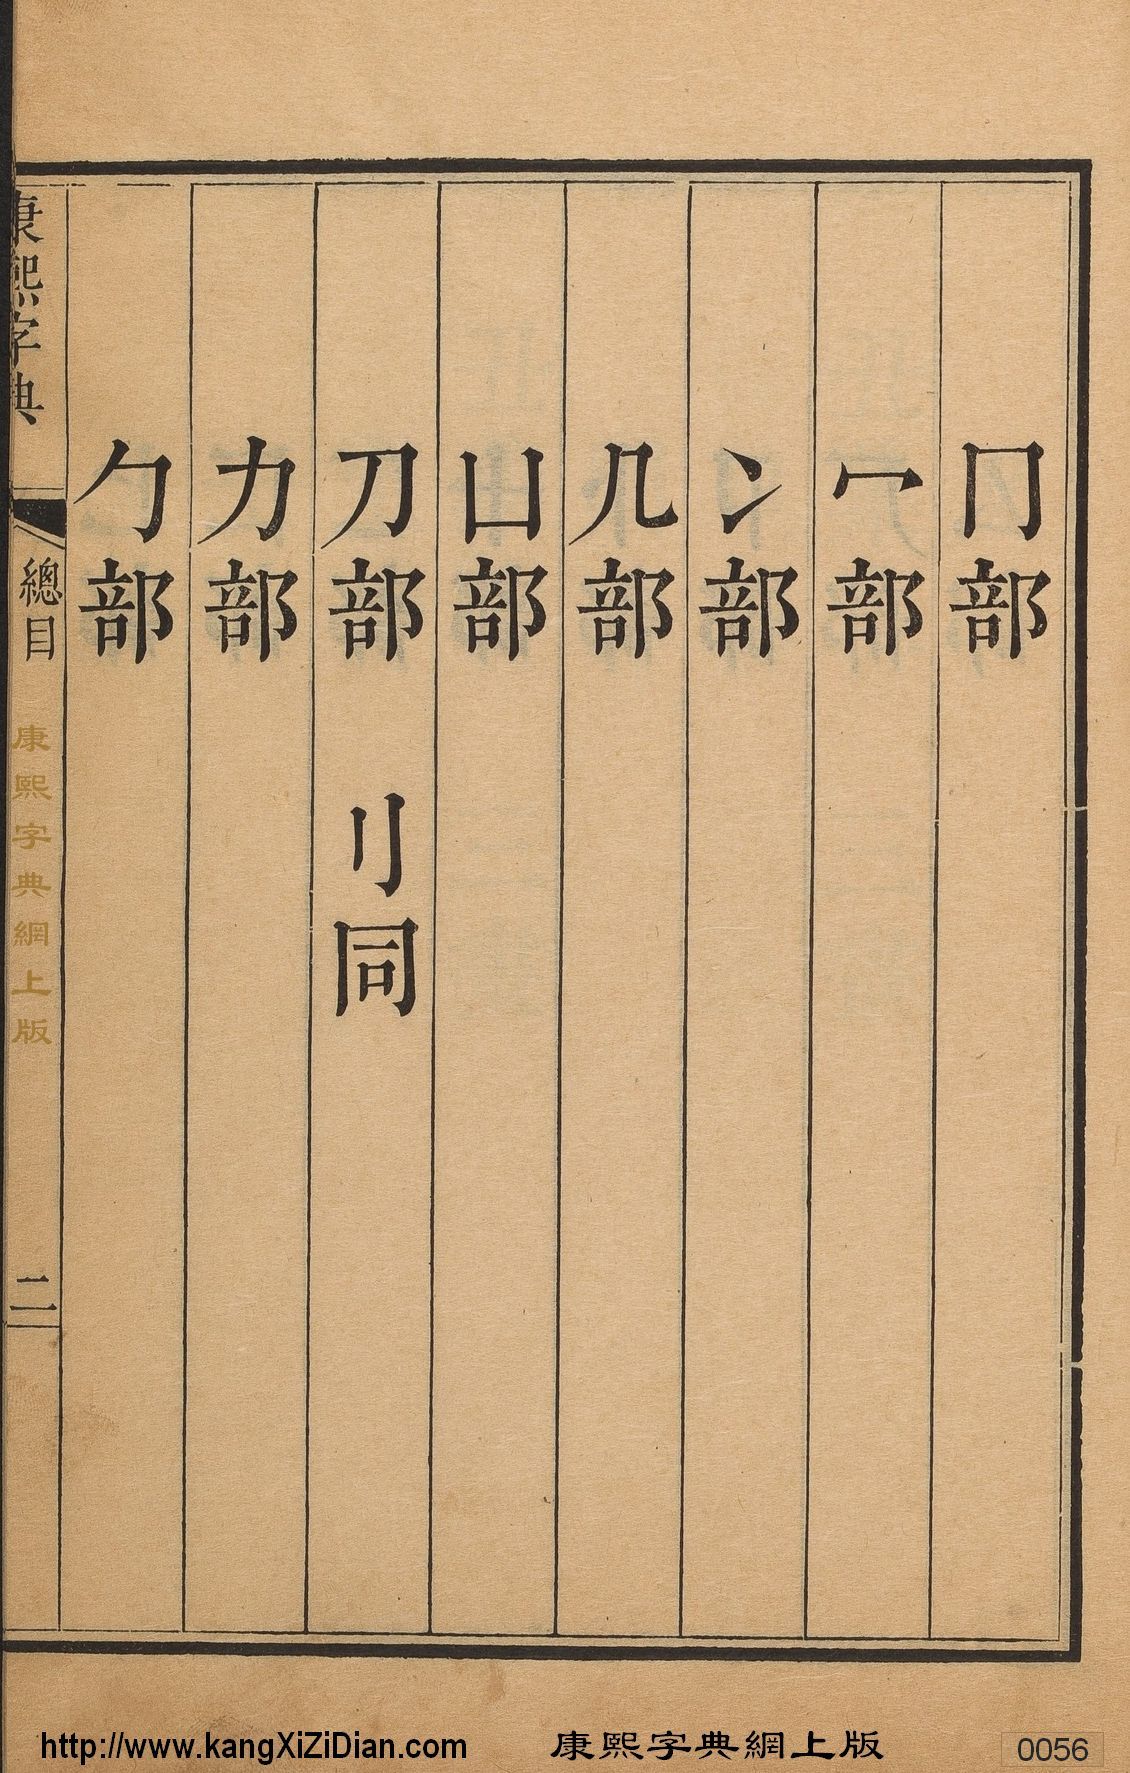 冂部
冖部
冫部
几部
凵部
刀部 刂同
力部
勹部
康熙字典
總目
二
康熙字典網上版
http://www.kangXiZiDian.com 康熙字典網上版 0056